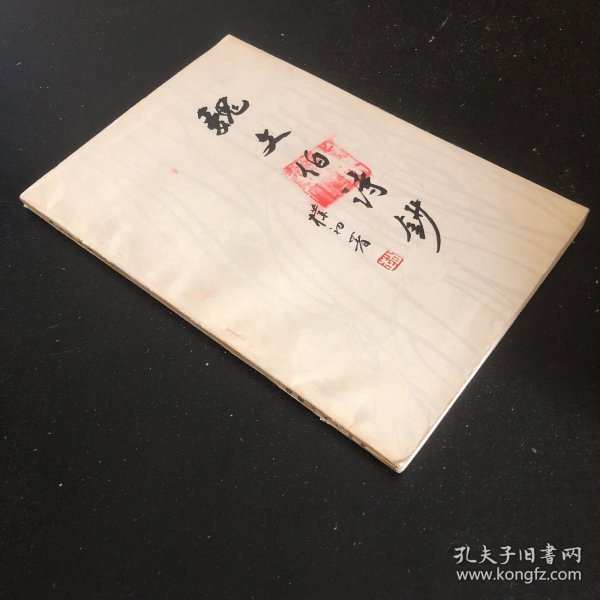 魏文伯诗钞
樸初署
孔夫子旧書网
www.kongfz.com